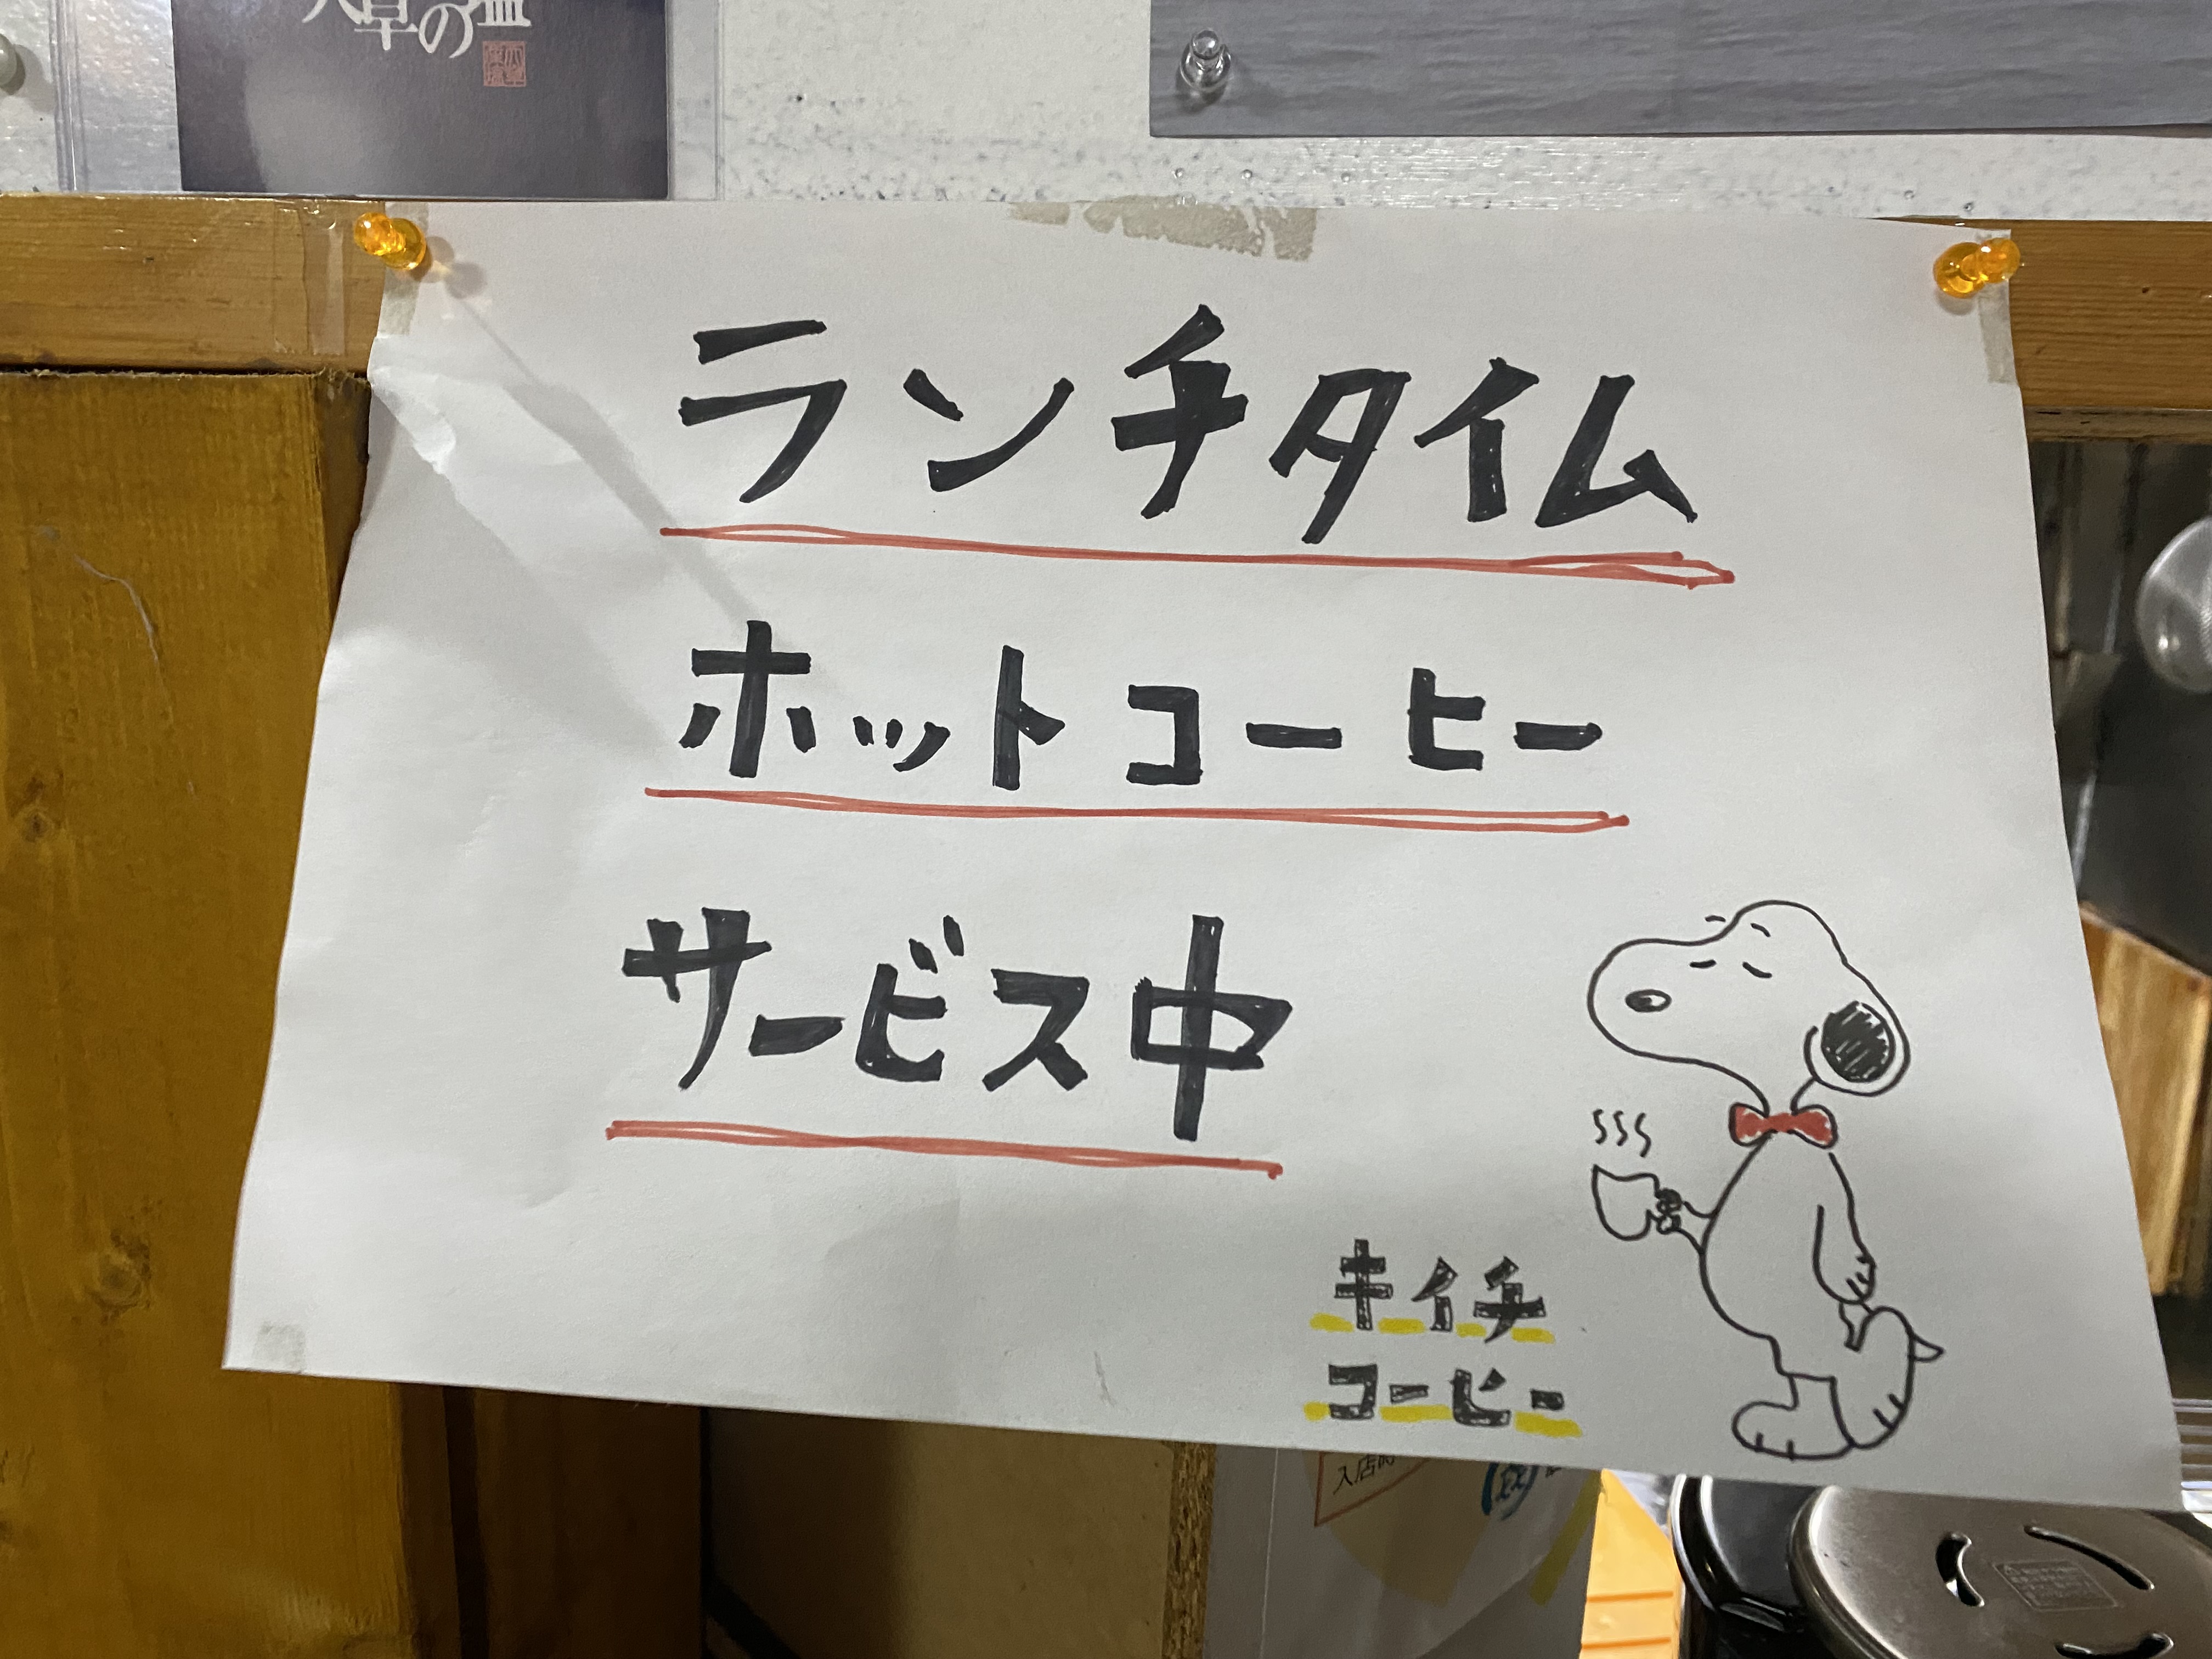 草の塩
ランチタイム
ホットコーヒー
サービス中
キイチ
コーヒー
入店